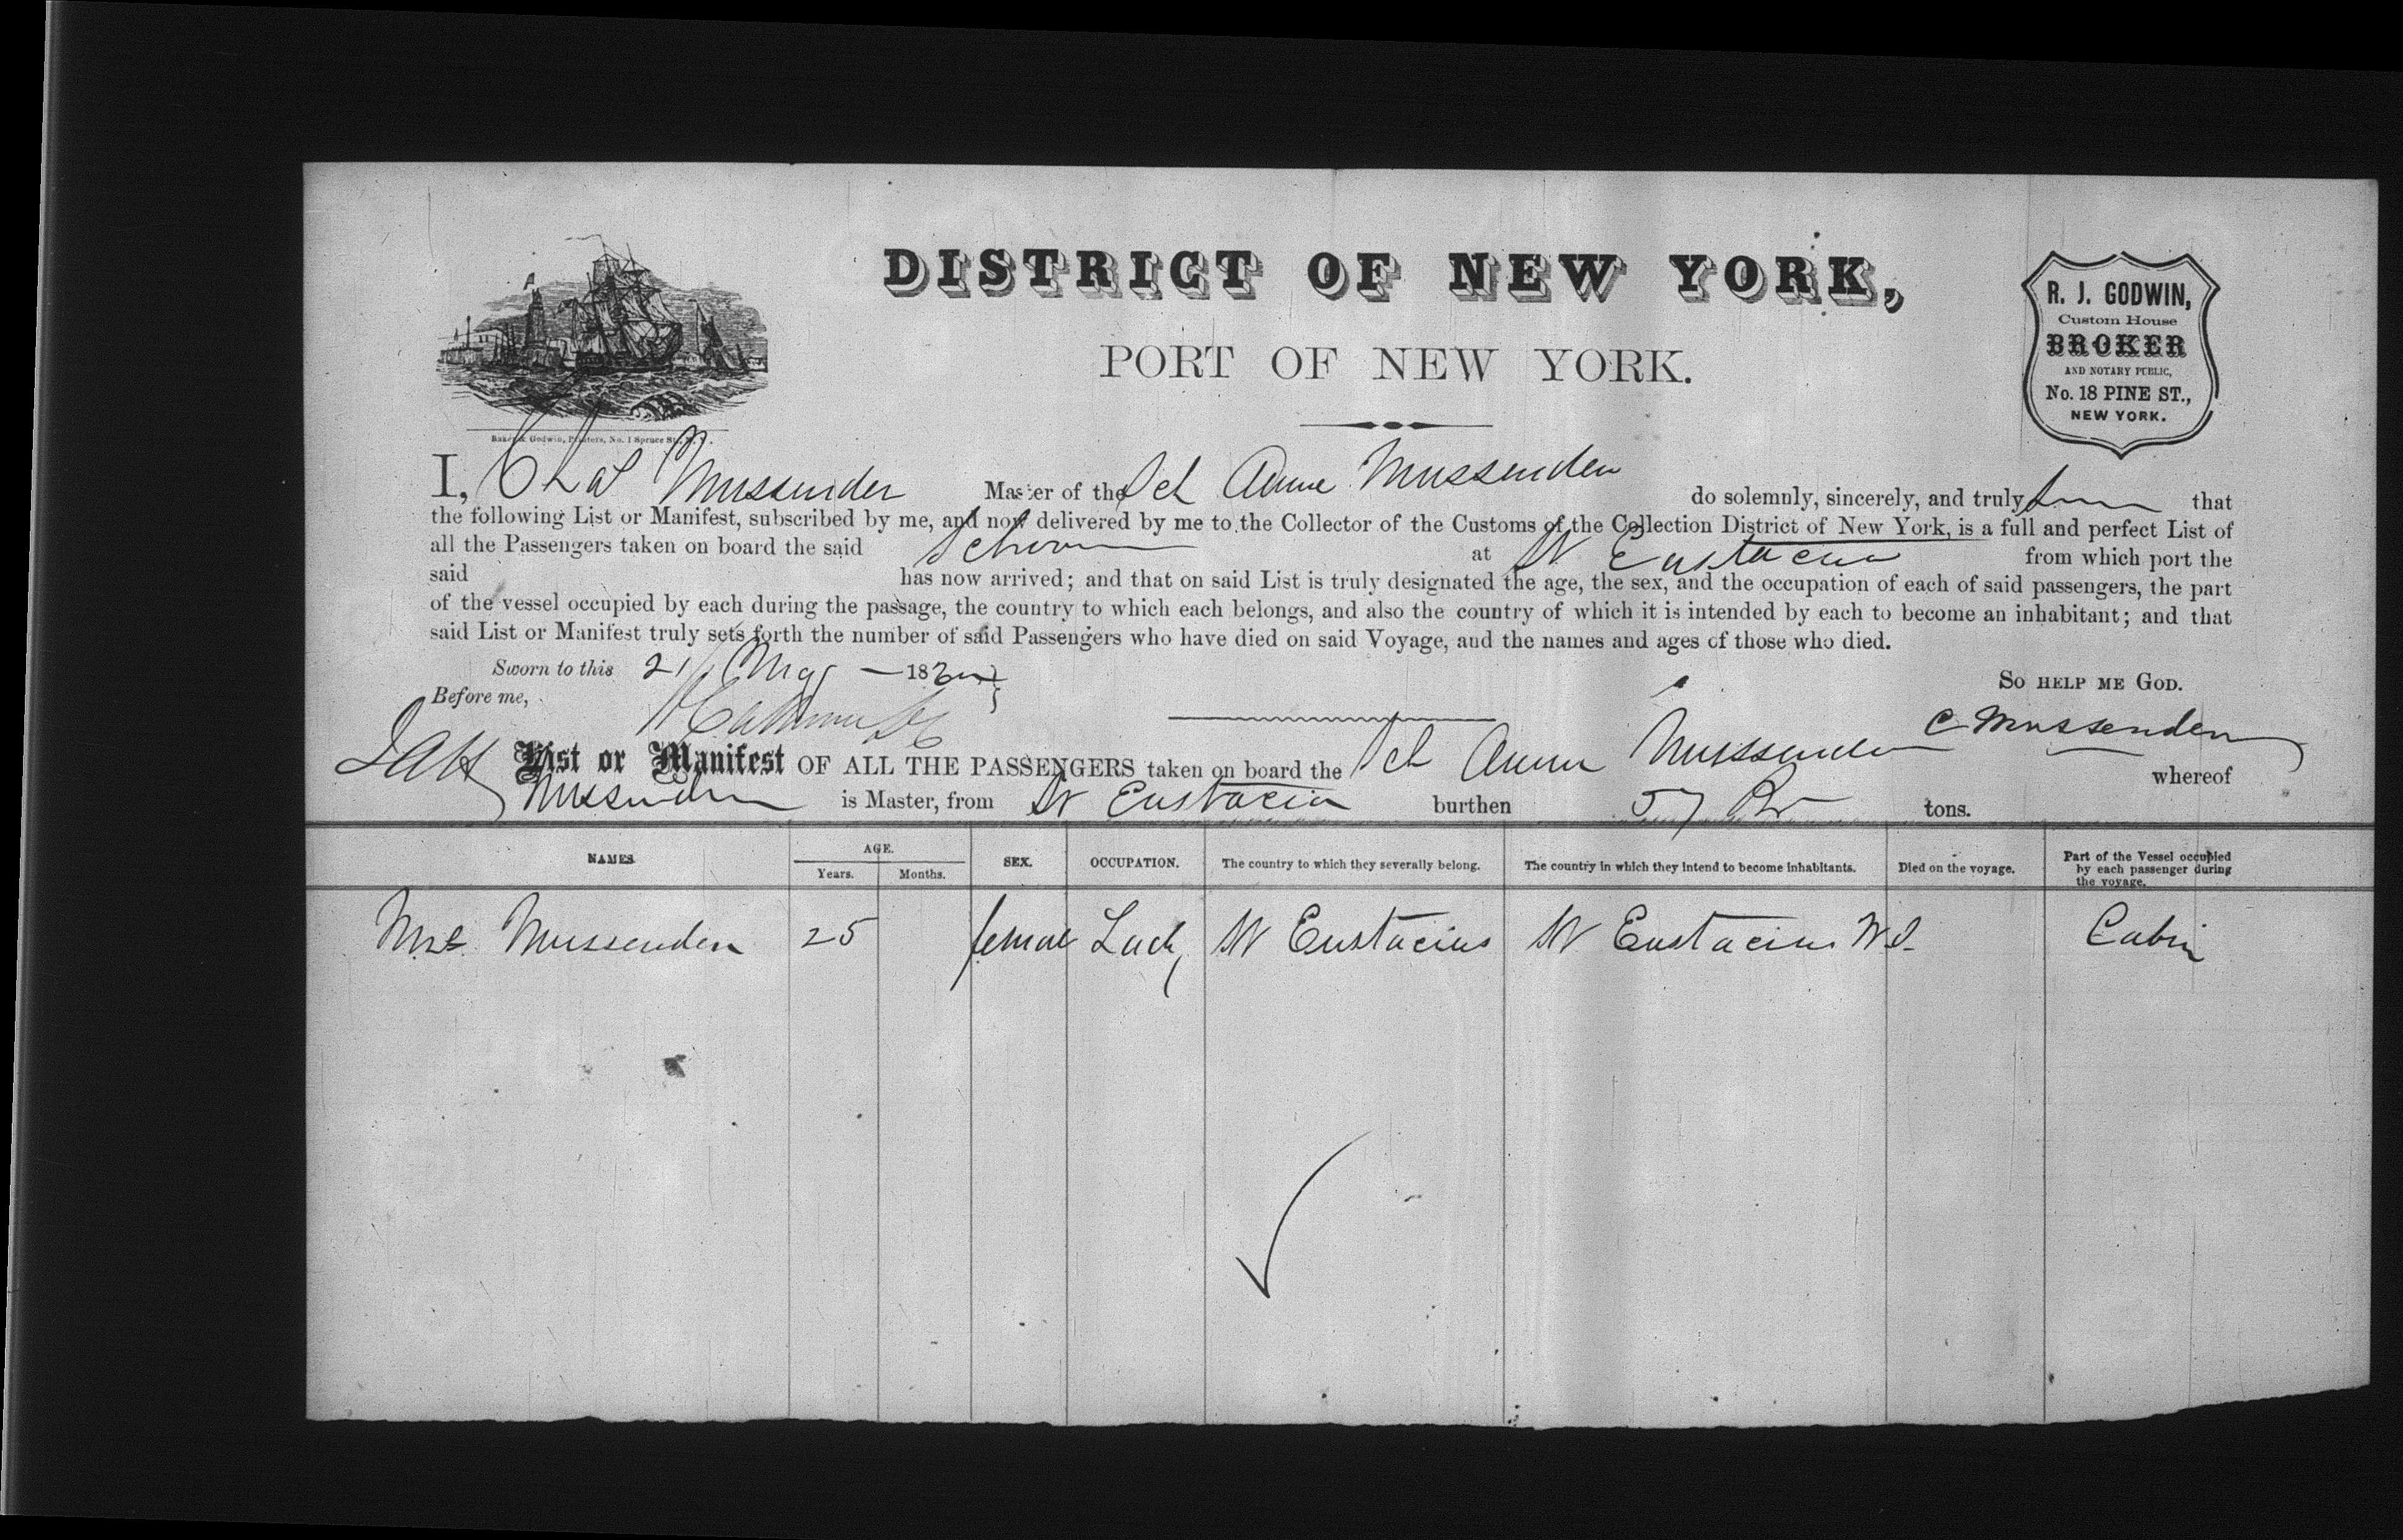 DISTRICT OF NEW YORK,
PORT OF NEW YORK.
R. J. GODWIN,
Custom House
BROKER
AND NOTARY PUBLIC,
No. 18 PINE ST.,
NEW YORK.
Baker & Godwin, Printers, No. 1 Spruce St., N. Y.
I, Chas Mussenden Master of the Sch Anne Mussenden do solemnly, sincerely, and truly that
the following List or Manifest, subscribed by me, and now delivered by me to the Collector of the Customs of the Collection District of New York, is a full and perfect List of
all the Passengers taken on board the said Schooner at St Eustacia from which port the
said has now arrived; and that on said List is truly designated the age, the sex, and the occupation of each of said passengers, the part
of the vessel occupied by each during the passage, the country to which each belongs, and also the country of which it is intended by each to become an inhabitant; and that
said List or Manifest truly sets forth the number of said Passengers who have died on said Voyage, and the names and ages of those who died.
Sworn to this 21 May 18
So HELP ME GOD.
Before me,
C Mussenden
List or Manifest OF ALL THE PASSENGERS taken on board the Sch Anne Mussenden whereof
Mussenden is Master, from St Eustacia burthen 57 tons.
NAMES AGE. Years. Months. SEX. OCCUPATION. The country to which they severally belong. The country in which they intend to become inhabitants. Died on the voyage. Part of the Vessel occupied by each passenger during the voyage.
Mrs Mussenden 25 female Lady St Eustacius St Eustacius W.I. Cabin